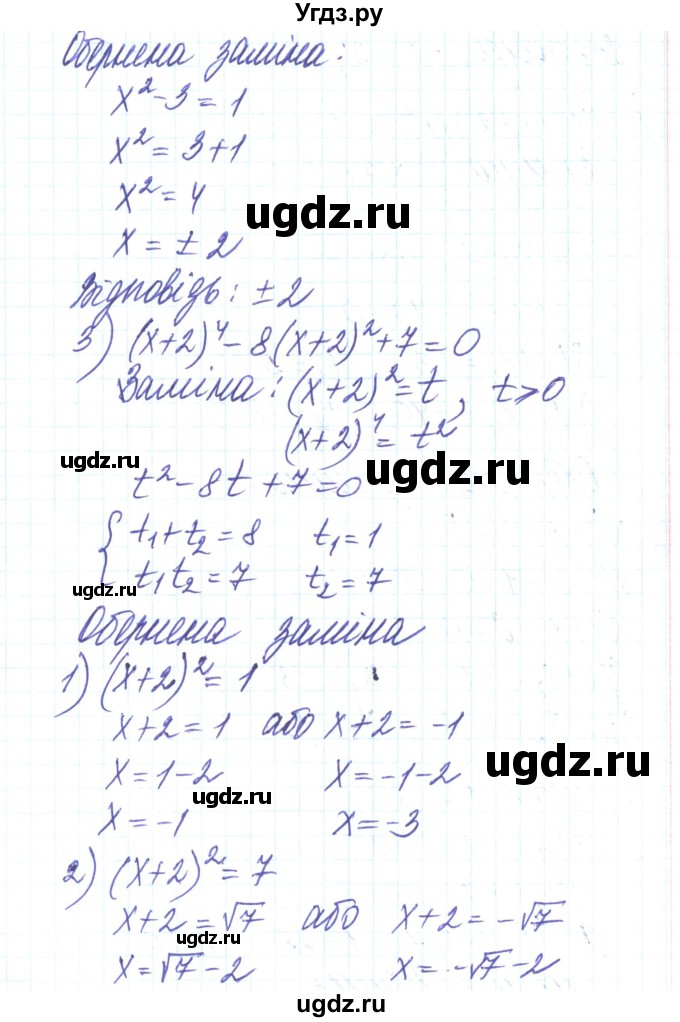 Угдз.ру
Обернена заміна:
x² - 3 = 1
x² = 3 + 1
x² = 4
ugdz.ru
x = ± 2
Відповідь: ± 2
3) (x+2)⁴ - 8(x+2)² + 7 = 0
Заміна: (x+2)² = t, t ≥ 0
(x+2)⁴ = t²
ugdz.ru
ugdz.ru
t² - 8t + 7 = 0
{ t₁ + t₂ = 8 t₁ = 1
t₁t₂ = 7 t₂ = 7
ugdz.ru
Обернена заміна
1) (x+2)² = 1
x + 2 = 1 або x + 2 = -1
x = 1 - 2 x = -1 - 2
ugdz.ru
ugdz.ru
x = -1 x = -3
2) (x+2)² = 7
x + 2 = √7 або x + 2 = -√7
ugdz.ru
x = √7 - 2 x = -√7 - 2
ugdz.ru